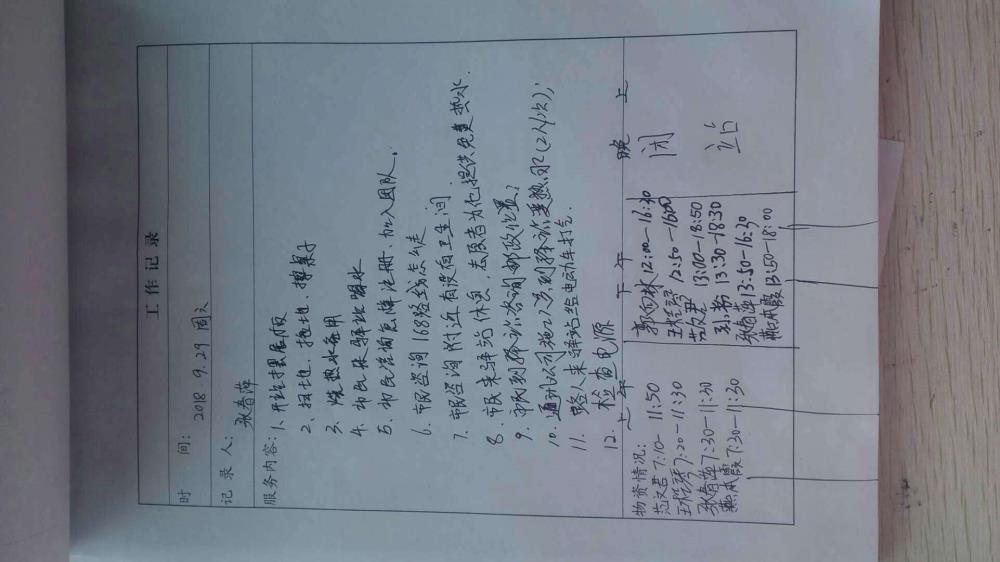 工作记录
时间: 2018.9.29 周六
记录人: 张春萍
服务内容: 1、开站摆展板
2、扫地、拖地、擦桌子
3、烧热水备用
4、市民来驿站喝水
5、市民咨询怎样注册、加入团队。
6、市民咨询168路线怎么走
7、市民咨询附近有没有卫生间.
8、市民来驿站休息,志愿者为他提供免费热水.
9、市民到驿站咨询邮政位置?
10、通讯公司施工人员到驿站要热水(2人/次);
11、路人来驿站给电动车打气.
12、检查电源
物资情况: 上午 下午 晚上
范文君 7:10-11:50 12:00-16:30 闭
王桂琴 7:20-11:30 12:50-16:00
张春萍 7:30-11:30 范文君 13:00-18:50
燕本霞 7:30-11:30 13:30-18:30 站
张春萍 13:50-16:30
燕本霞 13:50-18:00